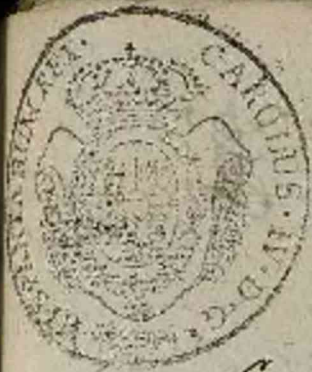 CAROLUS · IV · D · G ·
HISPANIARUM REX ·